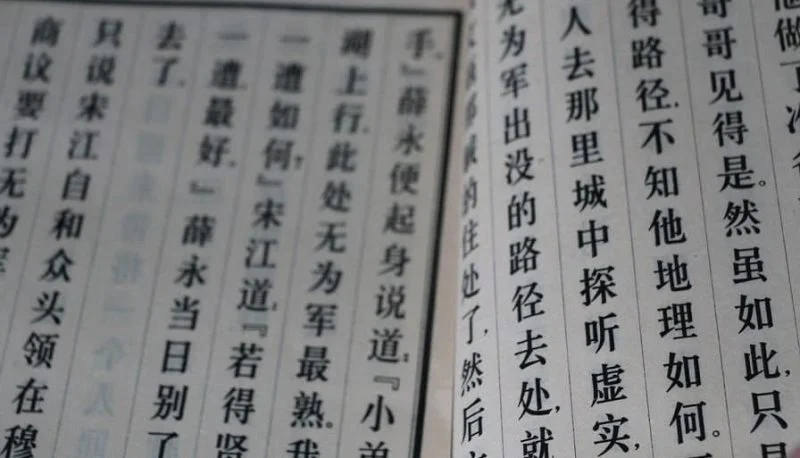 他做了
哥哥见得是。然虽如此,只
得路径,不知他地理如何。
人去那里城中探听虚实,
无为军出没的路径去处,就
的住处了,然后
手。』薛永便起身说道:『小弟
湖上行,此处无为军最熟。我
一遭如何?』宋江道:『若得贤
一遭最好。』薛永当日别了
去了。
只说宋江自和众头领在穆
商议要打无为军